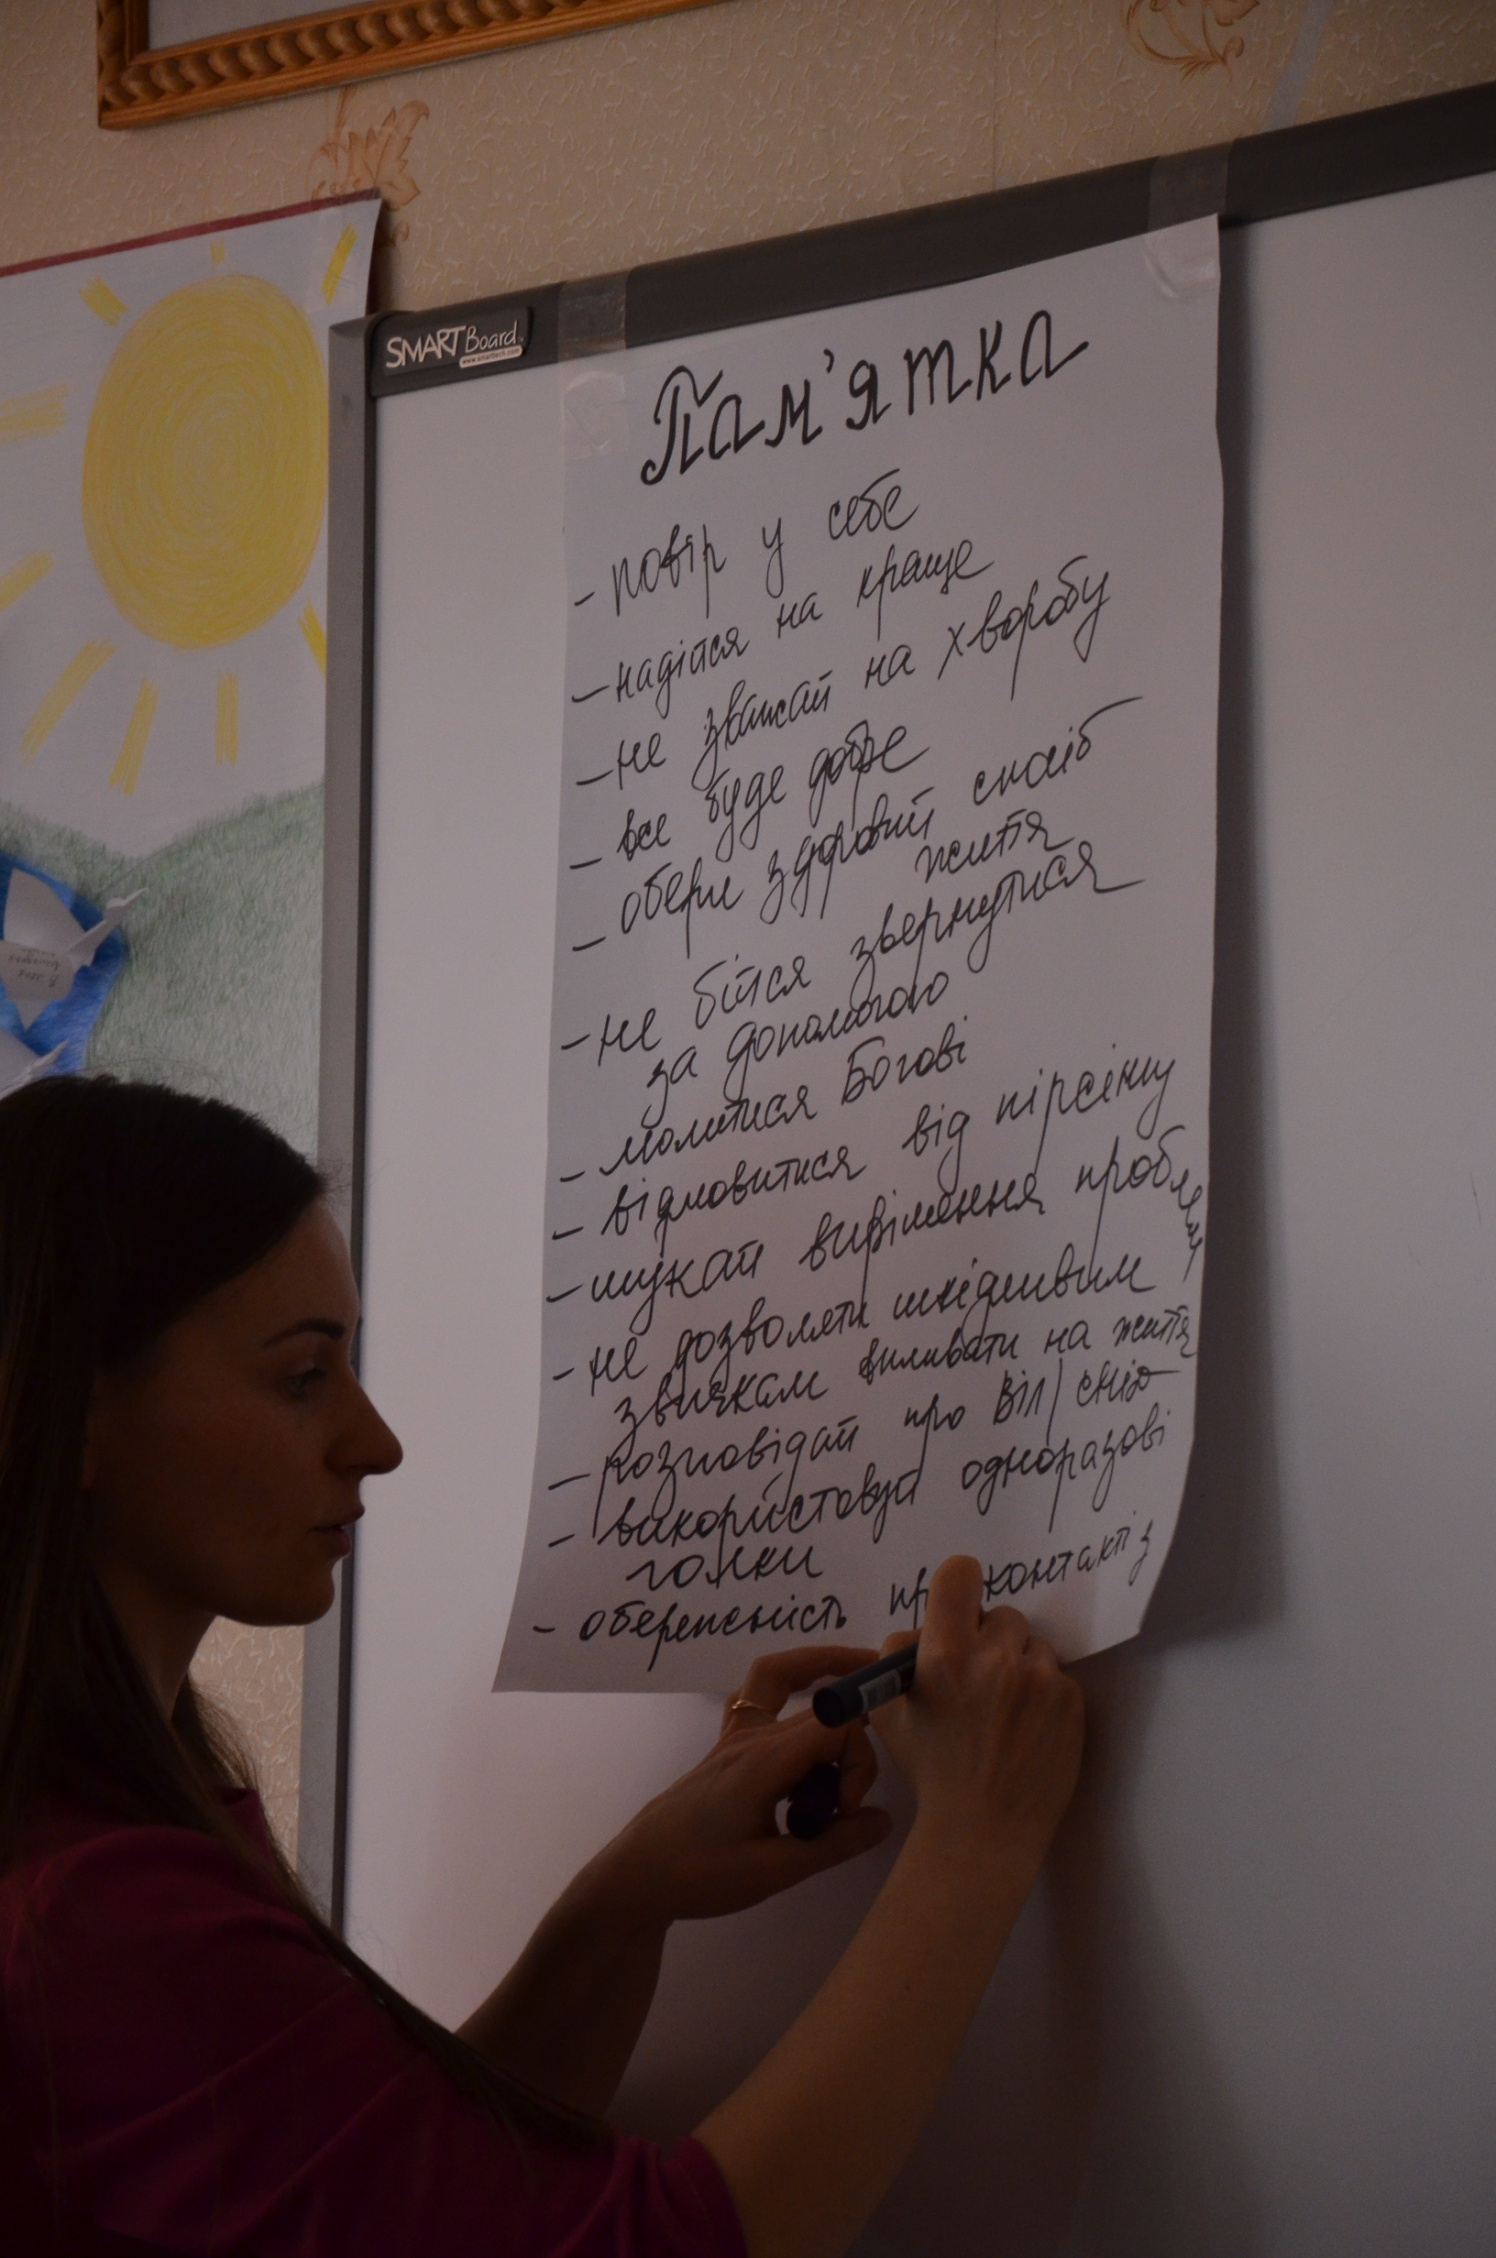 SMART Board
www.smarttech.com
Пам'ятка
- повір у себе
- надійся на краще
- не зважай на хворобу
- все буде добре
- обери здоровий спосіб
життя
- не бійся звернутися
за допомогою
- молитися Богові
- відмовитися від пірсінгу
- шукай вирішення проблеми
- не дозволяти шкідливим
звичкам впливати на життя
- розповідай про ВІЛ/СНІД
- використовуй одноразові
голки
- обережність при контакті з